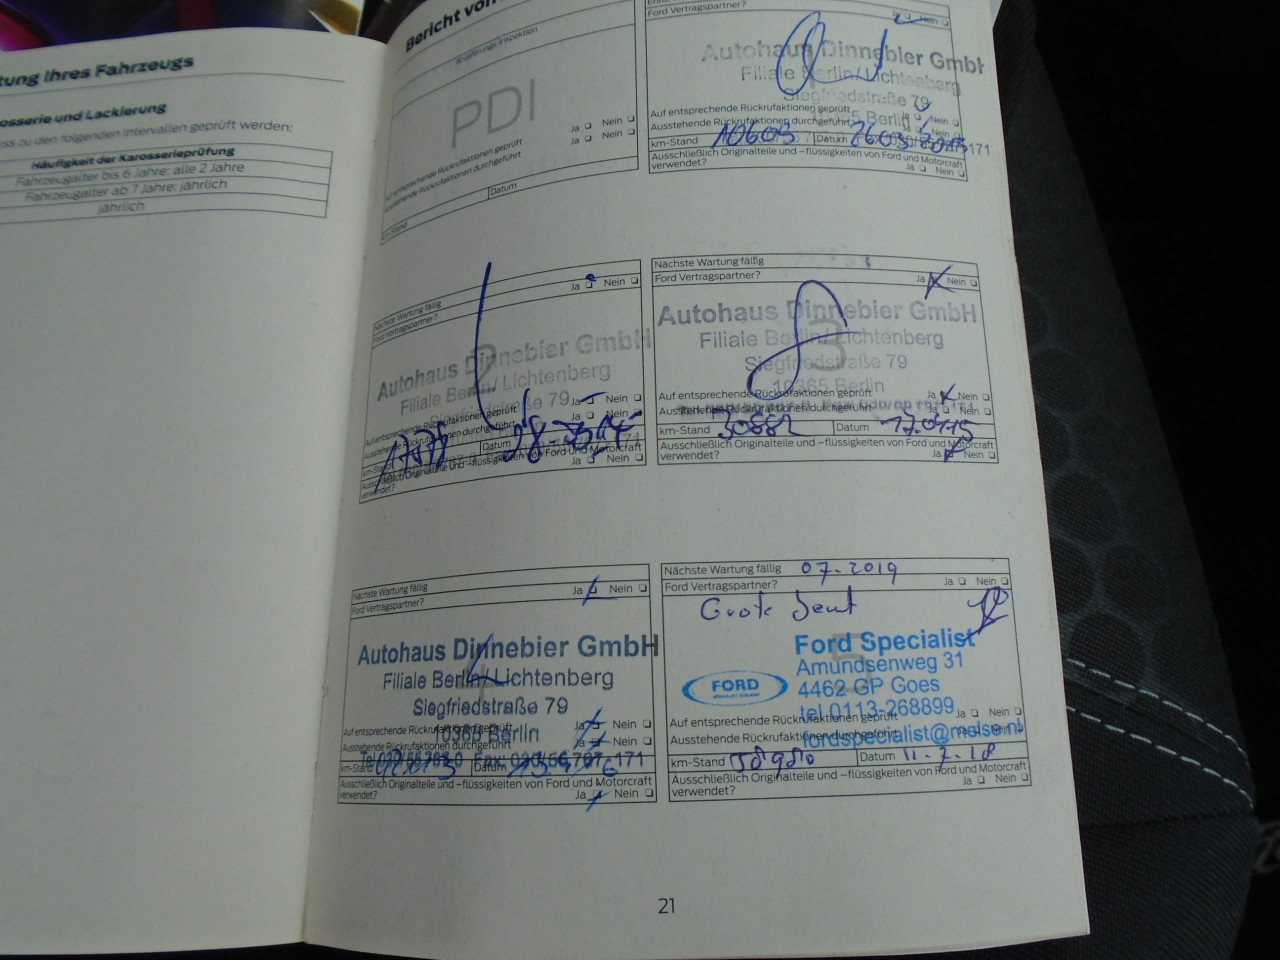 tung Ihres Fahrzeugs
osserie und Lackierung
ss zu den folgenden Intervallen geprüft werden:
Häufigkeit der Karosserieprüfung
Fahrzeugalter bis 6 Jahre: alle 2 Jahre
Fahrzeugalter ab 7 Jahre: jährlich
jährlich
Bericht von
PDI
Auf entsprechende Rückrufaktionen geprüft Ja Nein
Ausstehende Rückrufaktionen durchgeführt Ja Nein
km-Stand Datum
Ford Vertragspartner? Ja Nein
Autohaus Dinnebier GmbH
Filiale Berlin/Lichtenberg
Siegfriedstraße 79
Auf entsprechende Rückrufaktionen geprüft
Berlin
Ausstehende Rückrufaktionen durchgeführt Nein
km-Stand 10609 Datum
Ausschließlich Originalteile und -flüssigkeiten von Ford und Motorcraft
verwendet? Ja Nein
Nächste Wartung fällig
Ford Vertragspartner? Ja Nein
Autohaus Dinnebier GmbH
Filiale Berlin/Lichtenberg
Siegfriedstraße 79
Auf entsprechende Rückrufaktionen geprüft Ja Nein
Ausstehende Rückrufaktionen durchgeführt Ja Nein
km-Stand Datum
Ausschließlich Originalteile und -flüssigkeiten von Ford und Motorcraft
verwendet? Ja Nein
Nächste Wartung fällig
Ford Vertragspartner? Ja Nein
Autohaus Dinnebier GmbH
3
Filiale Berlin/Lichtenberg
Siegfriedstraße 79
10365 Berlin
Auf entsprechende Rückrufaktionen geprüft Ja Nein
Ausstehende Rückrufaktionen durchgeführt Ja Nein
km-Stand 30882 Datum 17.04.15
Ausschließlich Originalteile und -flüssigkeiten von Ford und Motorcraft
verwendet? Ja Nein
Nächste Wartung fällig
Ford Vertragspartner? Ja Nein
Autohaus Dinnebier GmbH
Filiale Berlin/Lichtenberg
Siegfriedstraße 79
Auf entsprechende Rückrufaktionen geprüft Ja Nein
10365 Berlin
Ausstehende Rückrufaktionen durchgeführt Ja Nein
km-Stand Datum
Ausschließlich Originalteile und -flüssigkeiten von Ford und Motorcraft
verwendet? Ja Nein
Nächste Wartung fällig 07-2019
Ford Vertragspartner? Ja Nein
5
Ford Specialist
Amundsenweg 31
FORD
4462 GP Goes
tel.0113-268899
Auf entsprechende Rückrufaktionen geprüft Ja Nein
Ausstehende Rückrufaktionen durchgeführt
fordspecialist@melse.nl
km-Stand Datum 11-7-18
Ausschließlich Originalteile und -flüssigkeiten von Ford und Motorcraft
verwendet? Ja Nein
21